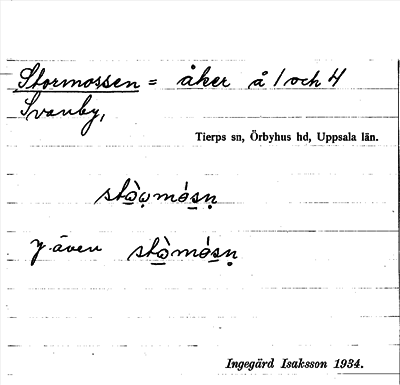 Stormossen = åker å 1 och 4
Svanby,
Tierps sn, Örbyhus hd, Uppsala län.
även
Ingegärd Isaksson 1934.